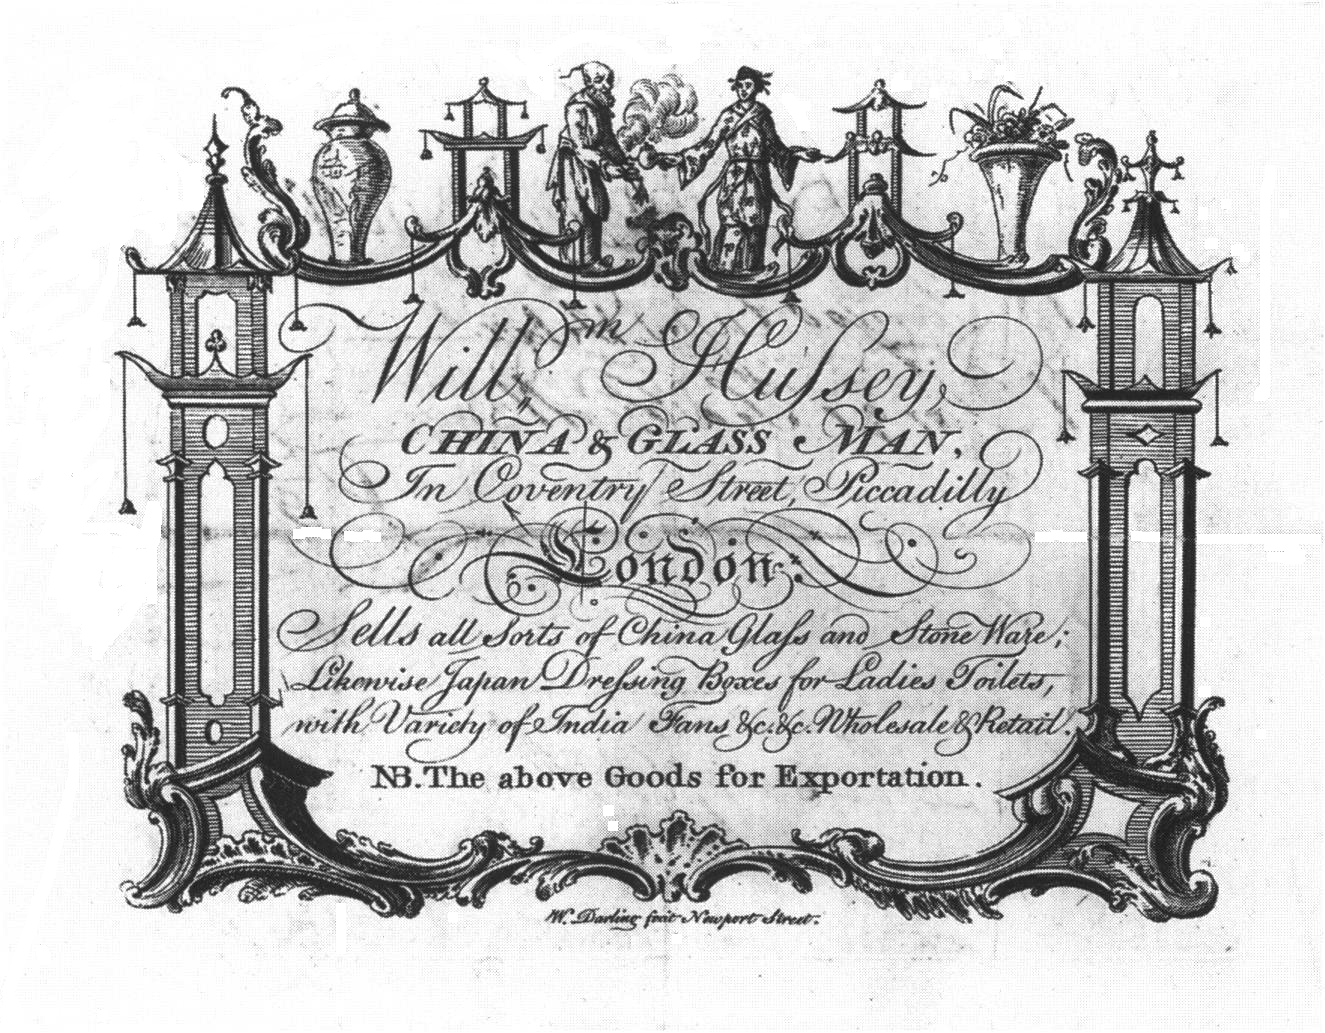 Will.m Hussey,
CHINA & GLASS MAN,
In Coventry Street, Piccadilly
London:
Sells all Sorts of China Glass and Stone Ware;
Likewise Japan Dressing Boxes for Ladies Toilets,
with Variety of India Fans &c. &c. Wholesale & Retail.
NB. The above Goods for Exportation.
W. Darling fecit Newport Street.